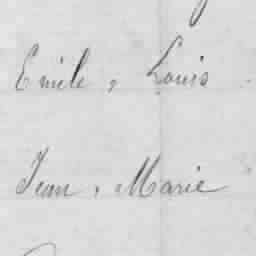 Emile, Louis
Jean, Marie